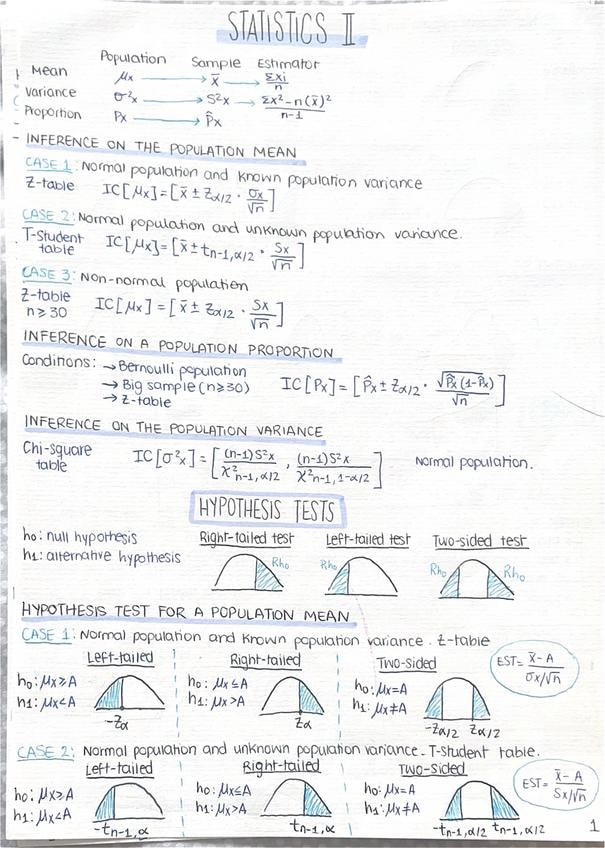 STATISTICS II
Population Sample Estimator
Mean μx → x̄ → Σxi/n
Variance σ²x → S²x → Σx²-n(x̄)²/n-1
Proportion Px → p̂x
INFERENCE ON THE POPULATION MEAN
CASE 1: Normal population and known population variance
Z-table IC[μx]=[x̄ ± Zα/2 · σx/√n]
CASE 2: Normal population and unknown population variance.
T-Student table IC[μx]=[x̄ ± tn-1,α/2 · Sx/√n]
CASE 3: Non-normal population
Z-table n≥30 IC[μx]=[x̄ ± Zα/2 · Sx/√n]
INFERENCE ON A POPULATION PROPORTION
Conditions: → Bernoulli population
→ Big sample (n≥30) IC[Px]=[p̂x ± Zα/2 · √p̂x(1-p̂x)/√n]
→ Z-table
INFERENCE ON THE POPULATION VARIANCE
Chi-square table IC[σ²x]=[(n-1)S²x/χ²n-1,α/2 , (n-1)S²x/χ²n-1,1-α/2] Normal population.
HYPOTHESIS TESTS
h0: null hypothesis Right-tailed test Left-tailed test Two-sided test
h1: alternative hypothesis Rh0 Rh0 Rh0 Rh0
HYPOTHESIS TEST FOR A POPULATION MEAN
CASE 1: Normal population and known population variance. Z-table
Left-tailed Right-tailed Two-sided EST= x̄-A/σx/√n
h0: μx≥A h0: μx≤A h0: μx=A
h1: μx<A h1: μx>A h1: μx≠A
-Zα Zα -Zα/2 Zα/2
CASE 2: Normal population and unknown population variance. T-Student table.
Left-tailed Right-tailed Two-sided EST= x̄-A/Sx/√n
h0: μx≥A h0: μx≤A h0: μx=A
h1: μx<A h1: μx>A h1: μx≠A
-tn-1,α tn-1,α -tn-1,α/2 tn-1,α/2
1